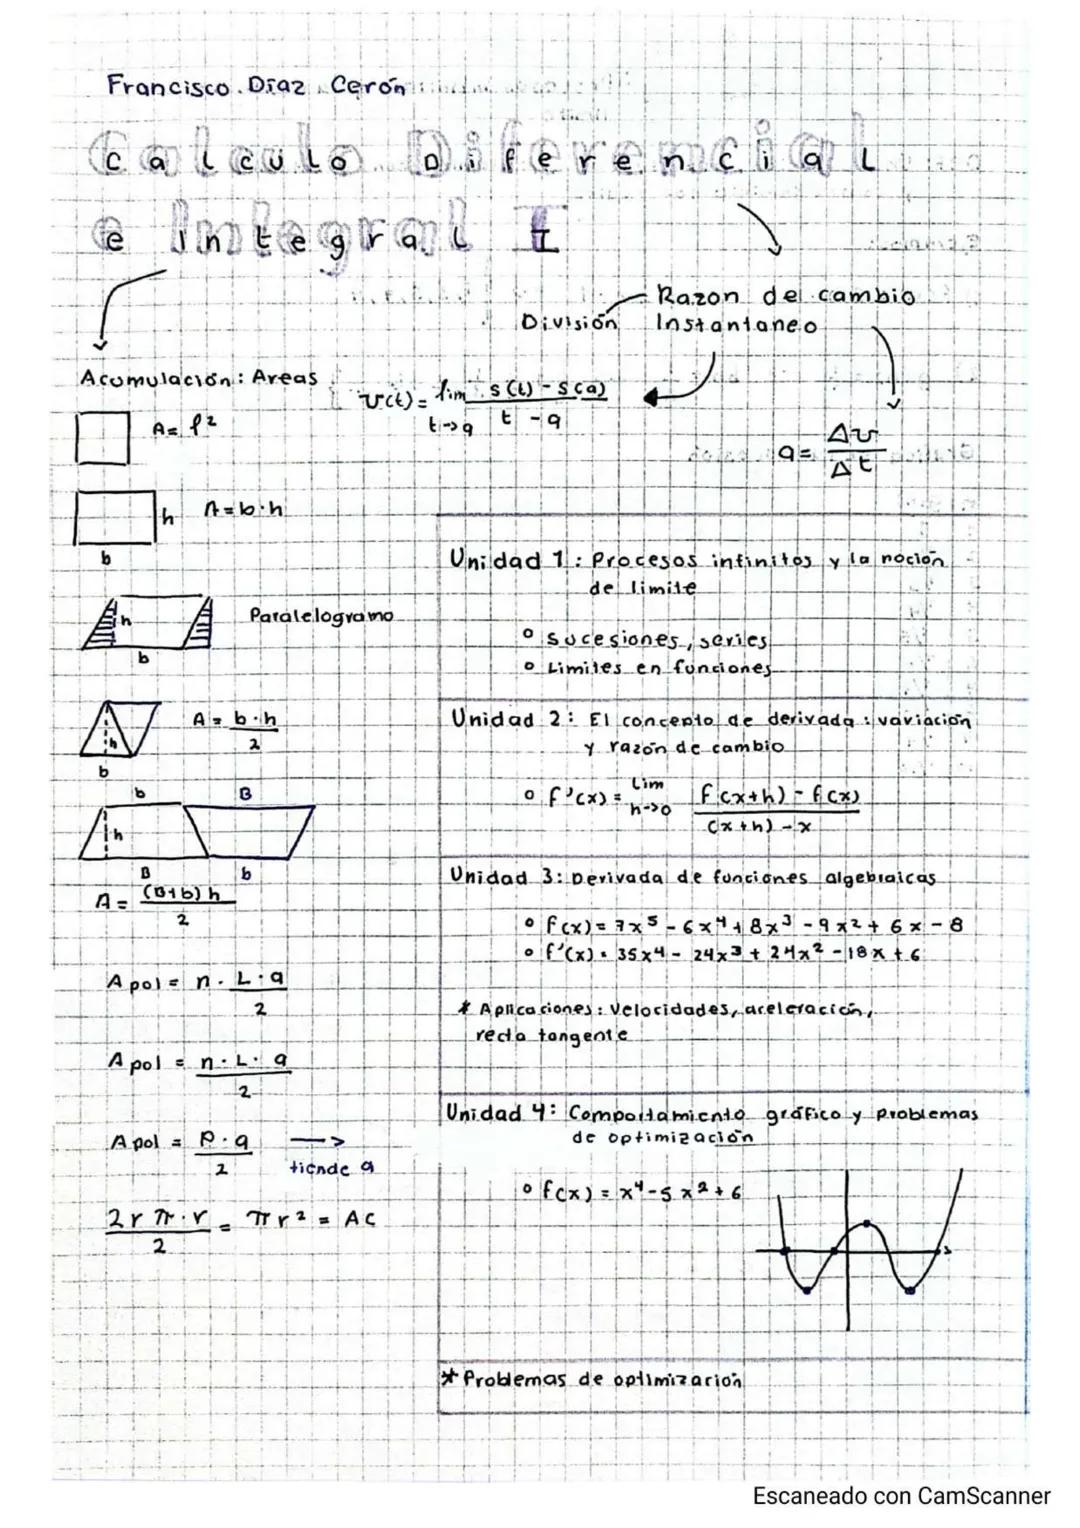 Francisco Díaz Cerón
Calculo Diferencial
e Integral I
Razon de cambio
División
Instantaneo
Acumulación: Areas
v(t) = lim s(t) - s(a)
t→a t - a
A = l²
a = Δv
Δt
h A = b·h
b
h
b
Paralelogramo
A = b·h
2
h
b
b B
h
B b
A = (B+b) h
2
A pol = n · L · a
2
A pol = n · L · a
2
A pol = P · a →
2 tiende a
2r π · r = π r² = AC
2
Unidad 1: Procesos infinitos y la noción
de limite
° sucesiones, series
° Limites en funciones
Unidad 2: El concepto de derivada: variación
y razón de cambio
° f'(x) = Lim f(x+h) - f(x)
h→0 (x+h) - x
Unidad 3: Derivada de funciones algebraicas
° f(x) = 7x⁵ - 6x⁴ + 8x³ - 9x² + 6x - 8
° f'(x) = 35x⁴ - 24x³ + 24x² - 18x + 6
* Aplicaciones: Velocidades, aceleración,
recta tangente
Unidad 4: Comportamiento gráfico y problemas
de optimización
° f(x) = x⁴ - 5x² + 6
* Problemas de optimización
Escaneado con CamScanner